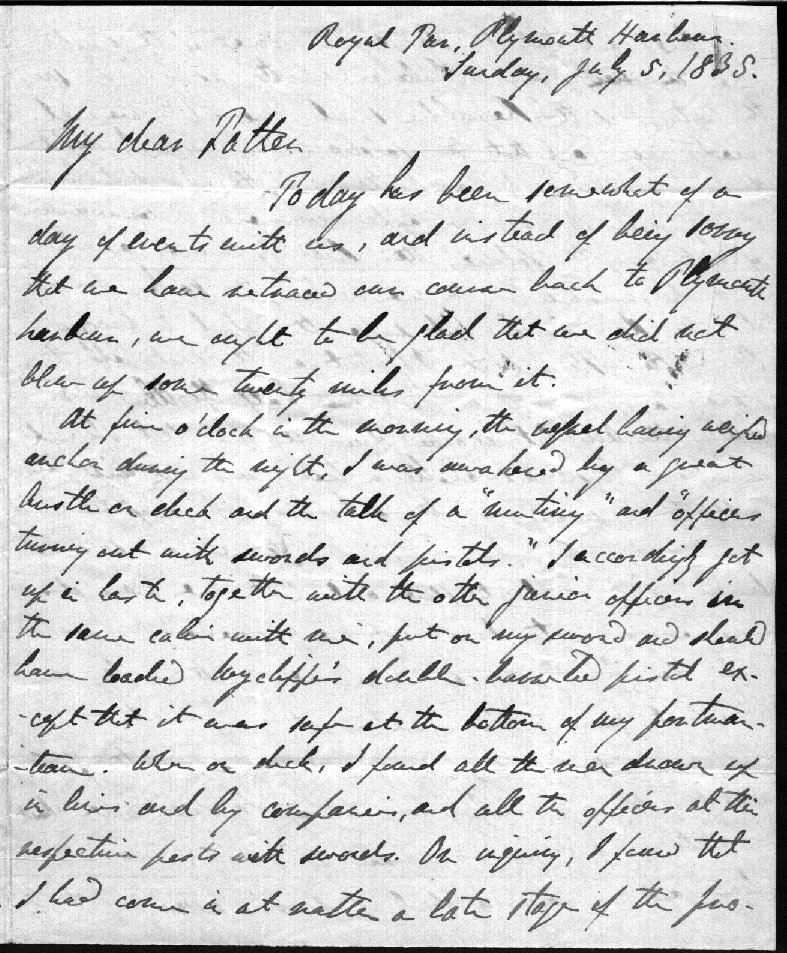 Royal Tar, Plymouth Harbour.
Sunday, July 5, 1835.
My dear Father
Today has been somewhat of a
day of events with us, and instead of being sorry
that we have retraced our course back to Plymouth
harbour, we ought to be glad that we did not
blow up some twenty miles from it.
At five o'clock in the morning, the vessel having weighed
anchor during the night, I was awakened by a great
bustle on deck and the talk of a "mutiny" and "officers
turning out with swords and pistols." I accordingly got
up in haste, together with the other junior officers in
the same cabin with me, put on my sword and should
have loaded Wycliffe's double-barrelled pistol ex-
-cept that it was safe at the bottom of my portman-
-teau. When on deck, I found all the men drawn up
in lines and by companies, and all the officers at their
respective posts with swords. On inquiry, I found that
I had come in at rather a late stage of the pro-